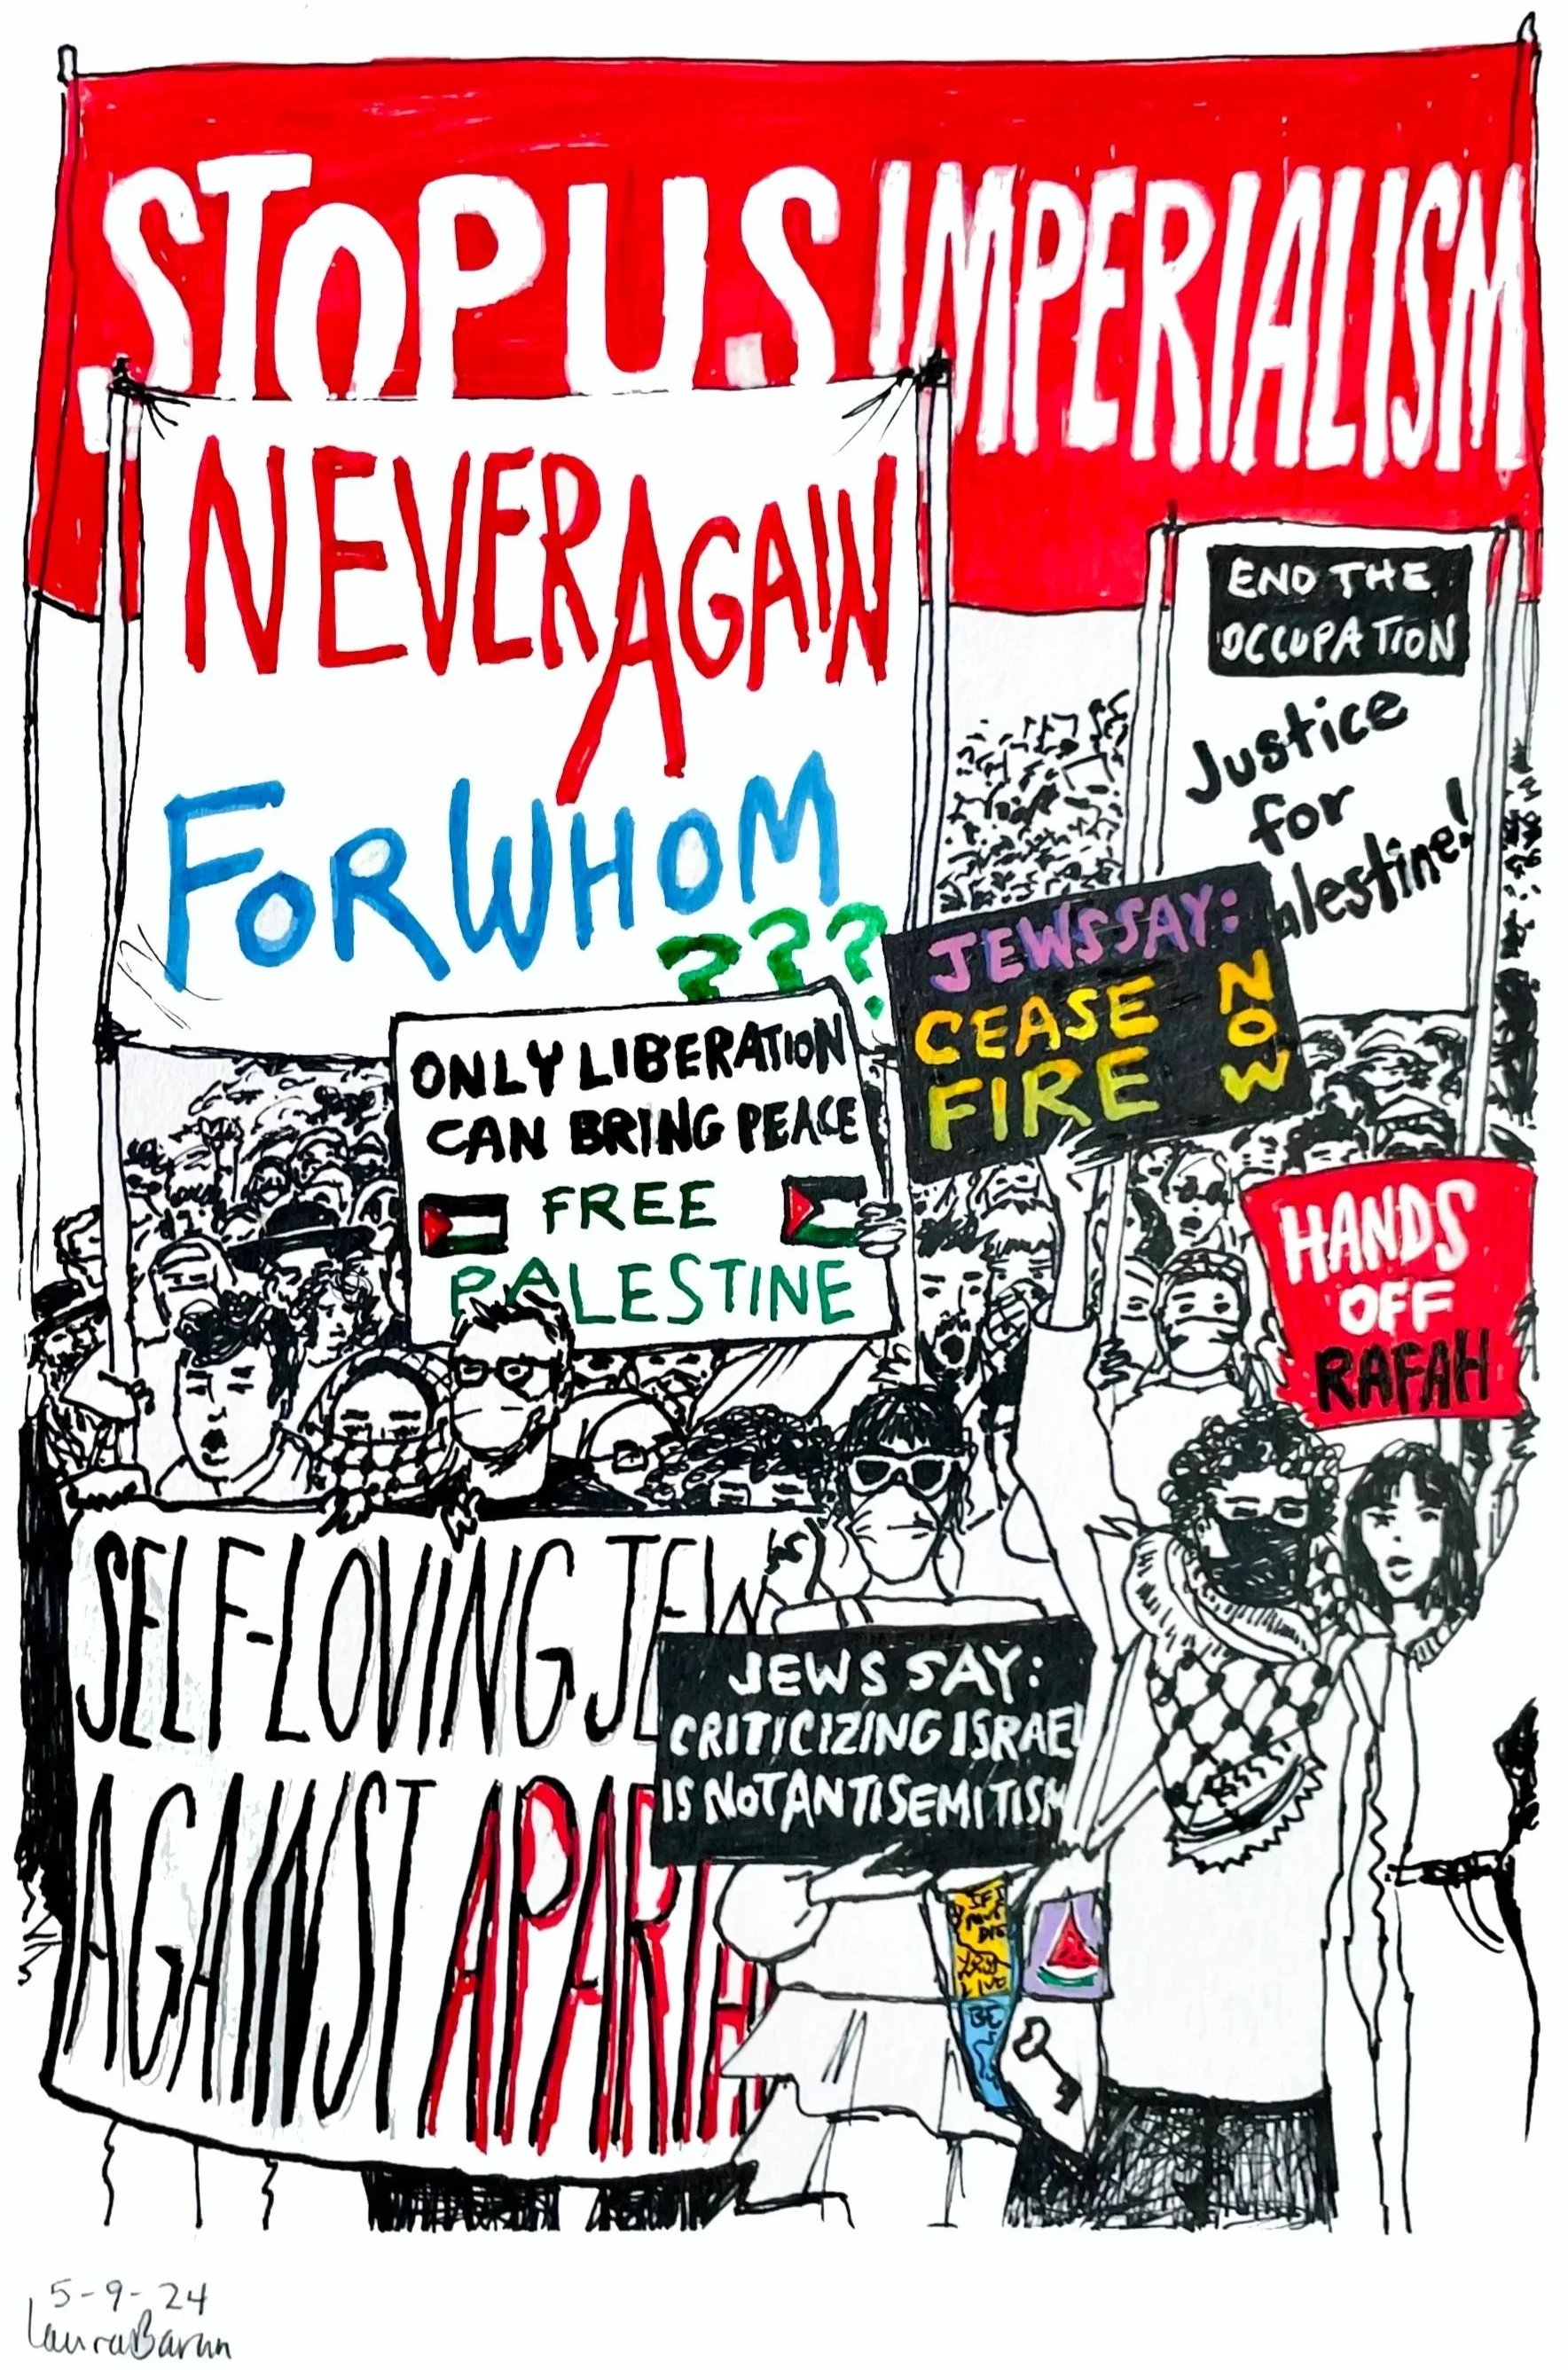 STOP U.S. IMPERIALISM
NEVER AGAIN
FOR WHOM
???
END THE
OCCUPATION
Justice
for
alestine!
JEWS SAY:
CEASE
FIRE
NOW
ONLY LIBERATION
CAN BRING PEACE
FREE
PALESTINE
HANDS
OFF
RAFAH
SELF-LOVING JEW
AGAINST APARTH
JEWS SAY:
CRITICIZING ISRAEL
IS NOT ANTISEMITISM
IF I
MUST
DIE
LIVE
5-9-24
Laura Baran